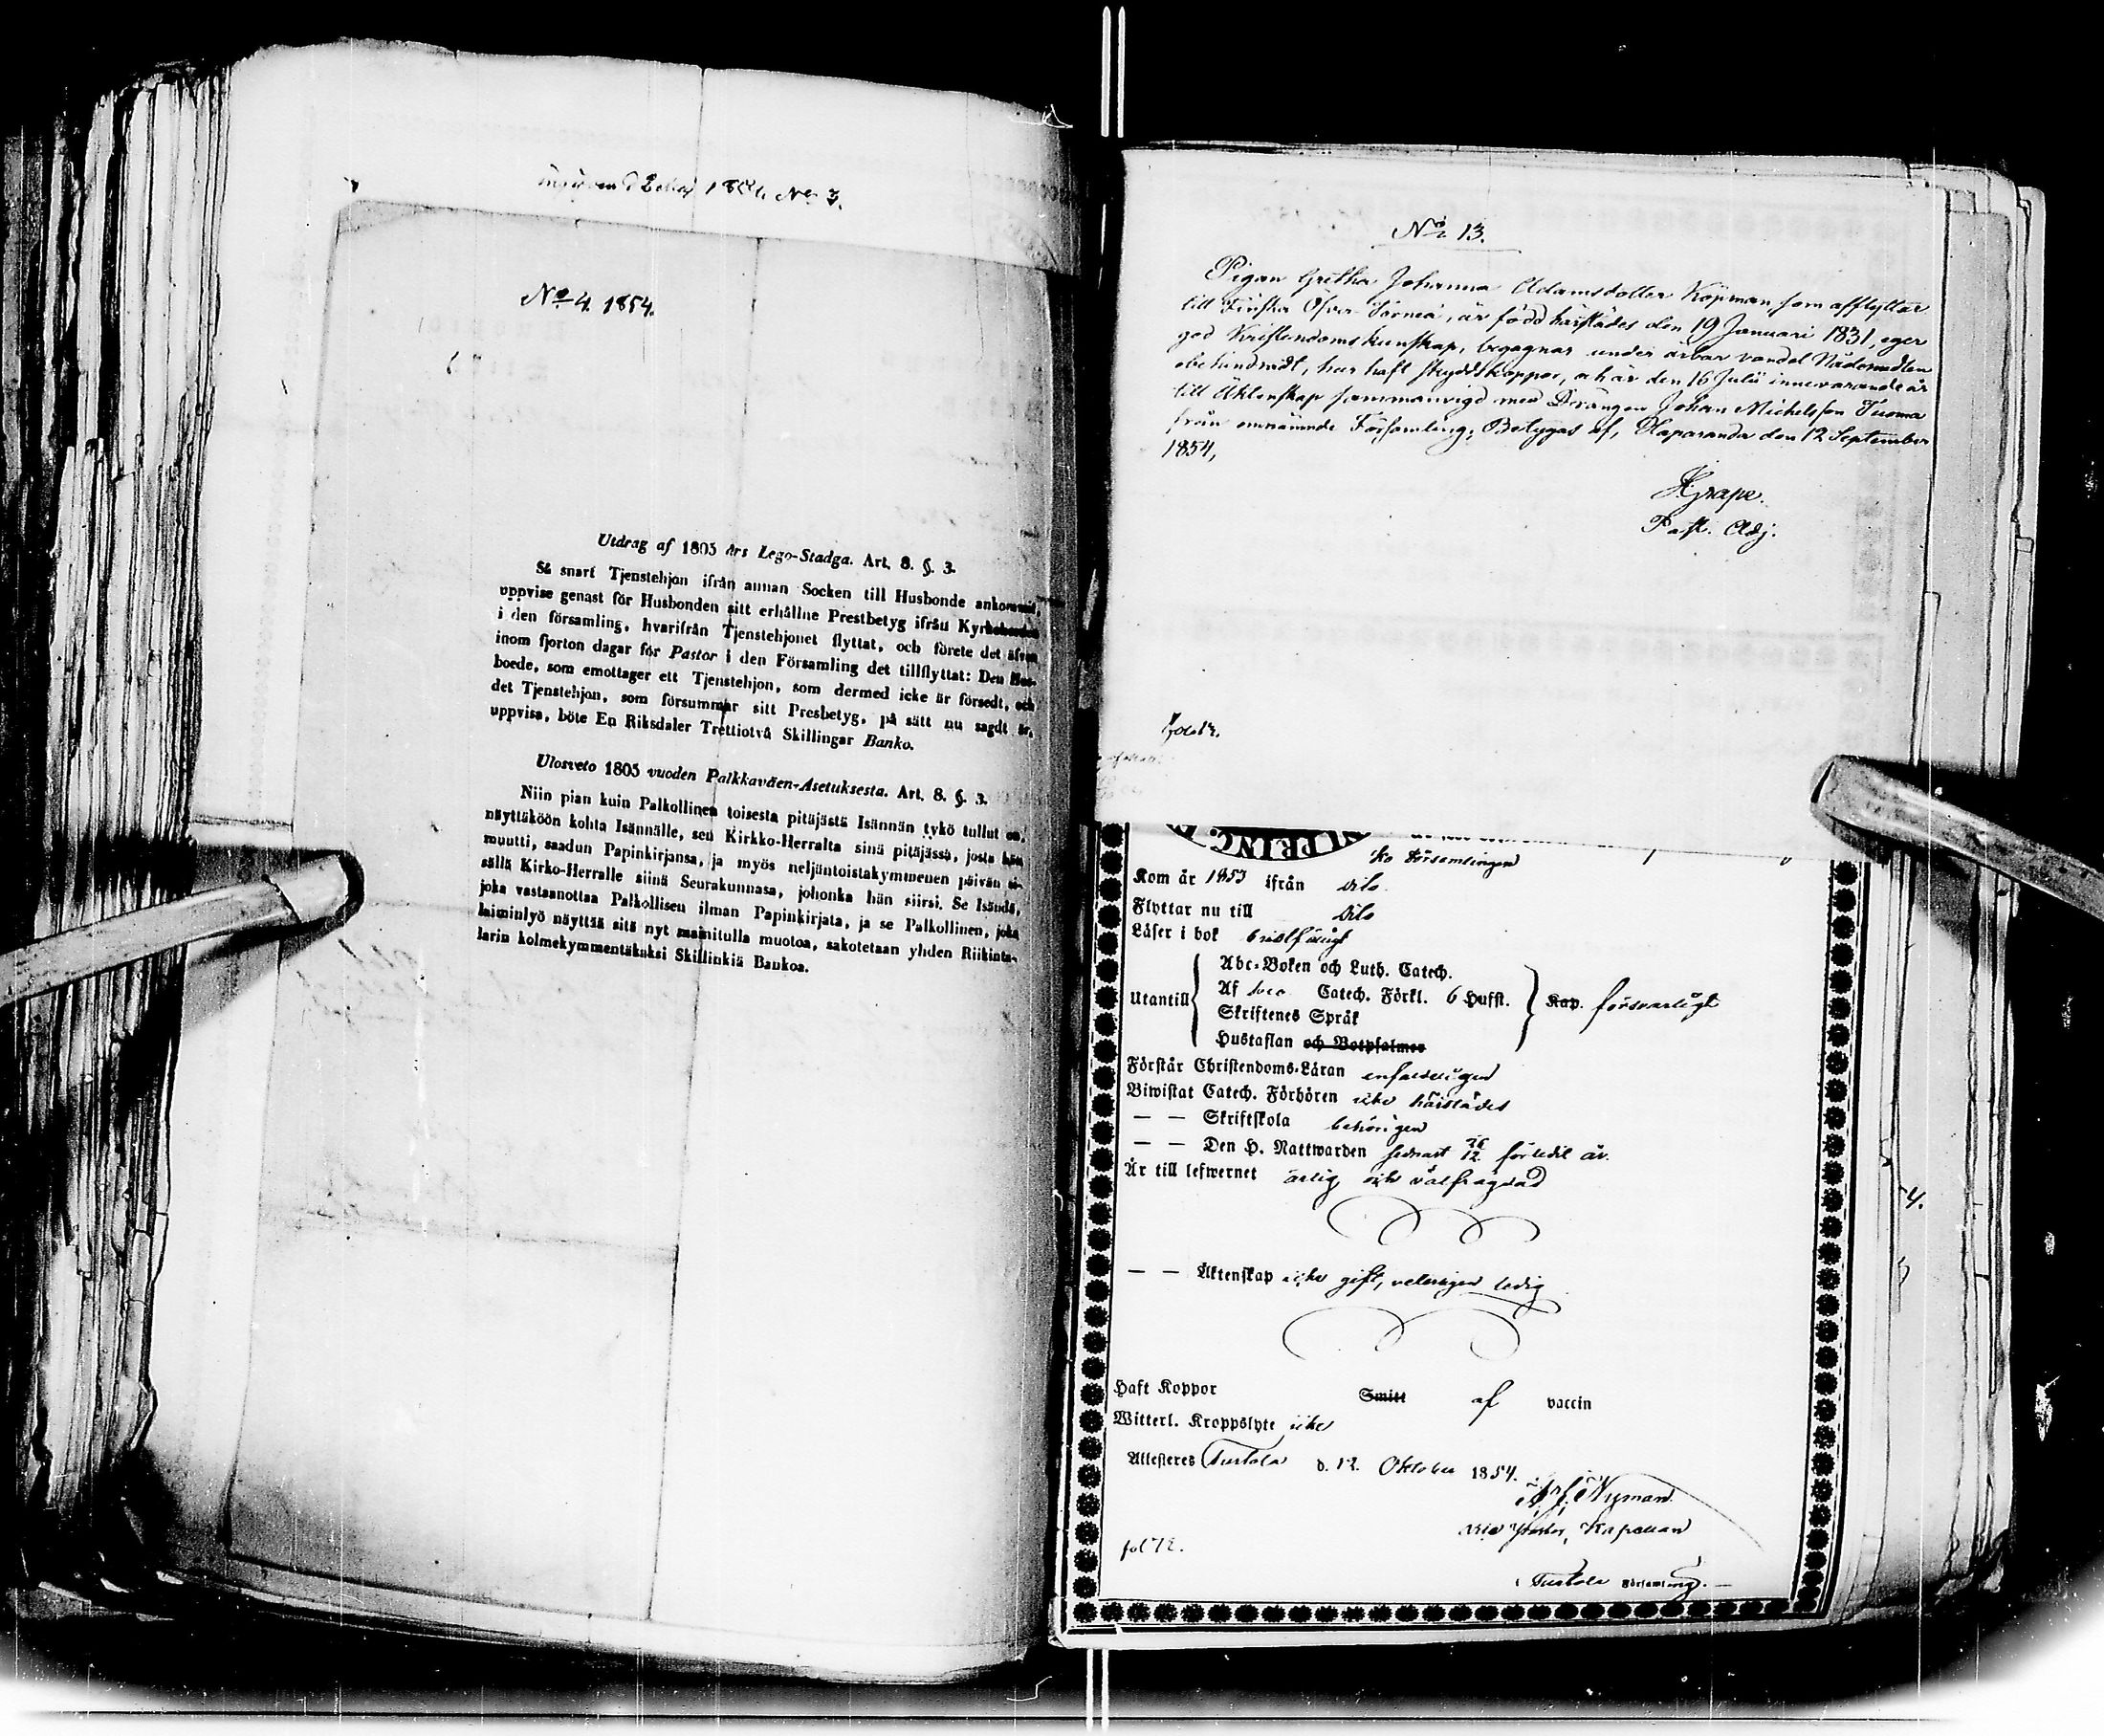 1854 No 3.
No 4. 1854.
Utdrag af 1805 års Lego-Stadga. Art. 8. §. 3.
Så snart Tjenstehjon ifrån annan Socken till Husbonde ankommit,
uppvise genast för Husbonden sitt erhållne Prestbetyg ifrån
i den församling, hvarifrån Tjenstehjonet flyttat, och förete det äfven
inom fjorton dagar för Pastor i den Församling det tillflyttat: Den Hus-
boede, som emottager ett Tjenstehjon, som dermed icke är försedt, och
det Tjenstehjon, som försummar sitt Presbetyg, på sätt nu sagdt är,
uppvisa, böte En Riksdaler Trettiotvå Skillingar Banko.
Ulosveto 1805 vuoden Palkkaväen-Asetuksesta. Art. 8. §. 3.
Niin pian kuin Palkollinen toisesta pitäjästä Isännän tykö tullut on,
näyttäköön kohta Isännälle, sen Kirkko-Herralta sinä pitäjässä, josta hän
muutti, saadun Papinkirjansa, ja myös neljäntoistakymmenen päivän si-
sällä Kirko-Herralle siinä Seurakunnasa, johonka hän siirsi. Se Isändä,
joka vastaanottaa Palkollisen ilman Papinkirjata, ja se Palkollinen, joka
laiminlyö näyttää sitä nyt mainitulla muotoa, sakotetaan yhden Riikinta-
larin kolmekymmentäkaksi Skillinkiä Bankoa.
No 13.
Pigan Gretha Johanna Adamsdotter Köpman, som afflyttar
till Finska Öfver-Torneå, är född härstädes den 19 Januari 1831, eger
god Kristendomskunskap, begagnar under ärbar vandel Nådemedlen
obehindradt, har haft skyddskoppor, och är den 16 Julii innevarande år
till Äktenskap sammanvigd med Drängen Johan Michelsson Tuoma
från omnämnde Församling; Betygas af, Haparanda den 12 September
1854,
Grape.
Past. Adj.
fol 12.
Församlingen
Kom år 1853 ifrån dito
Flyttar nu till dito
Läser i bok
Abc-Boken och Luth. Catech.
Utantill Af Catech. Förkl. 6 Hufst. Kap. försvarligt
Skriftenes Språk
Hustaflan och Botpsalmer
Förstår Christendoms-Läran enfaldeligen
Biwistat Catech. Förhören icke härstädes
— — Skriftskola behörigen
— — Den H. Nattwarden sednast 26/12 förledit år.
Är till lefwernet ärlig och välfrägdad
— — Äktenskap icke gift, veterligen ledig
Haft Koppor Smitt af vaccin
Witterl. Kroppslyte icke
Attesteres Turtola d. 12 Oktober 1854.
Nyman
Vice Pastor, Kapellan
Turtola Församling.
fol 72.